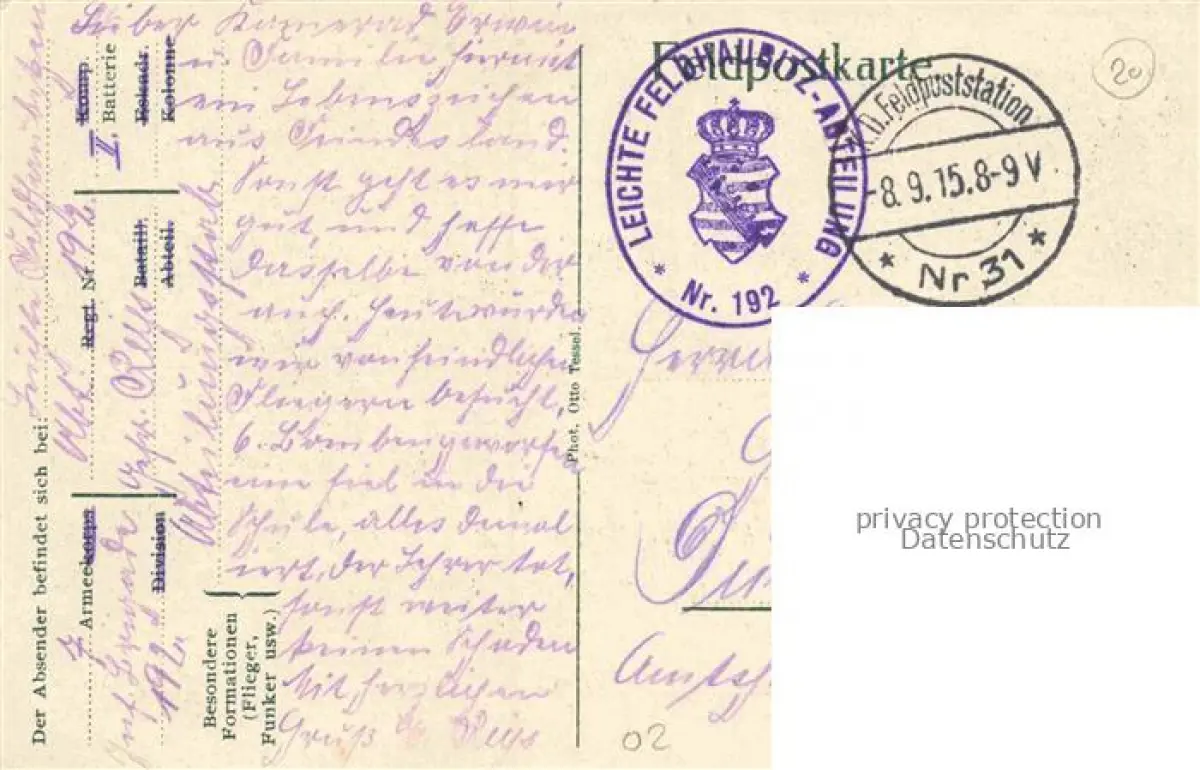 Lieber Kamerad Erwin
u. Familie hiermit
ein Lebenszeichen
aus Feindes Land.
Sonst geht es mir
gut, und hoffe
dasselbe von der
auch. Heute wurden
wir von feindlichen
Fliegern besucht,
6. Bomben geworfen
eine fiel in die
Schule, alles demol
iert, der Lehrer tot,
sonst weiter
keinen Schaden
Mit herzlichen
Gruß
Feldpostkarte
LEICHTE FELDHAUBITZ-ABTEILUNG
* Nr. 192 *
K.D. Feldpoststation
-8.9.15.8-9 V
* Nr 31 *
20
Phot. Otto Tessel.
Herrn
Amtsh
02
privacy protection
Datenschutz
Der Absender befindet sich bei:
Armeekorps
Regt. Nr. 192
II. Batterie
Komp.
Division
Bataill.
Eskadr.
192.
Abteil.
Kolonne
Abteilungsstab
Besondere
Formationen
(Flieger,
Funker usw.)